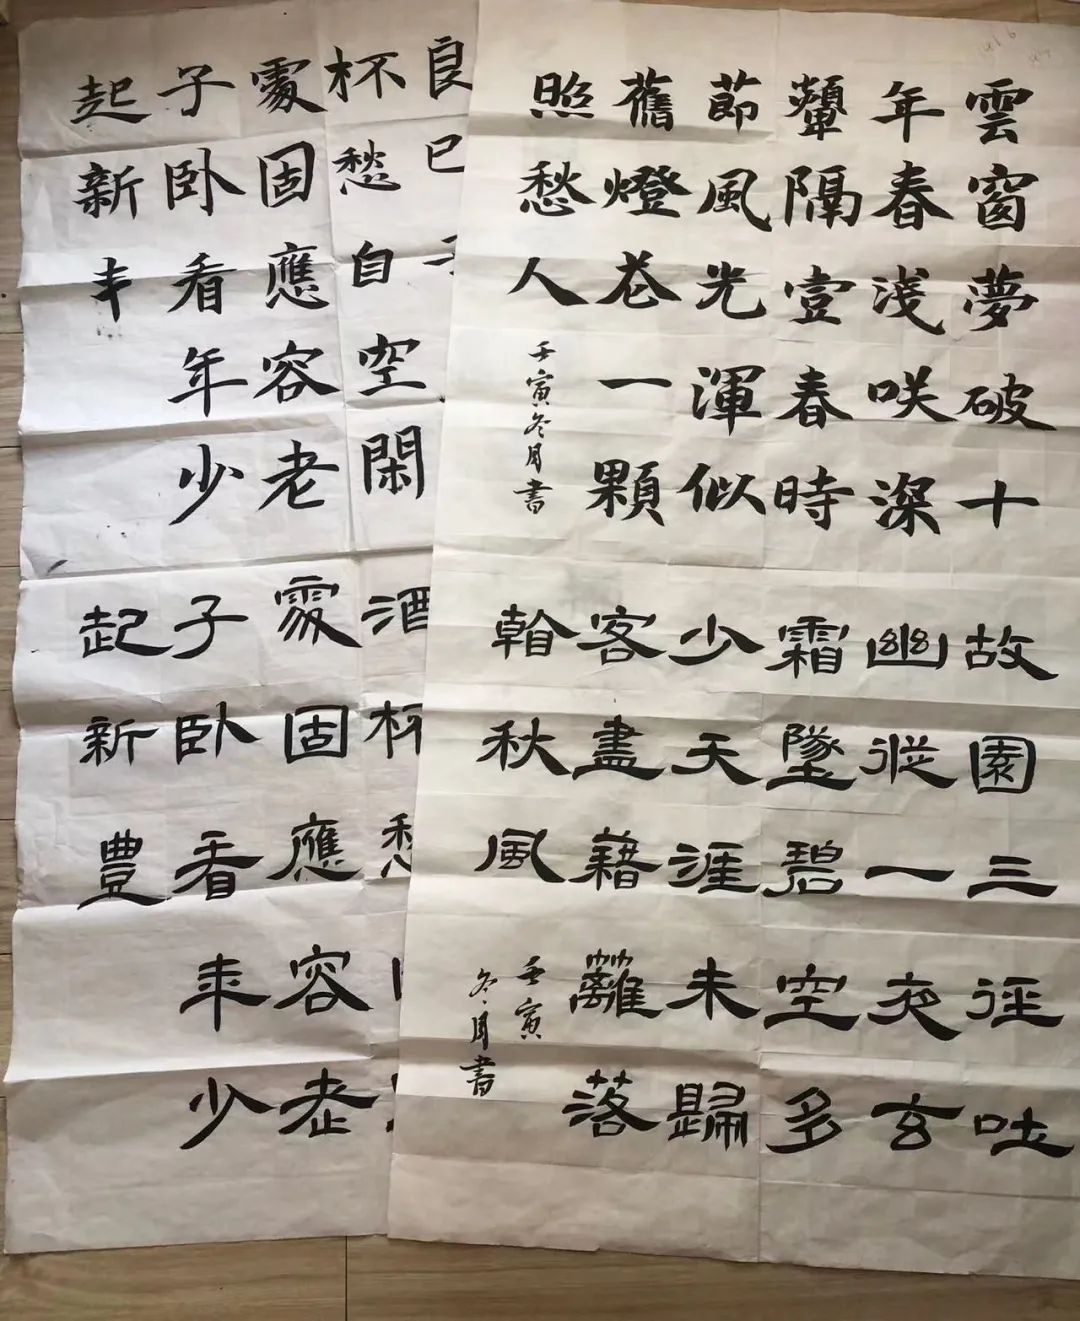 雲窗夢破十
年春淺咲深
顰隔壹春時
節風光渾似
舊燈花一顆
照愁人
壬寅冬月書
故園三徑吐
幽叢一夜玄
霜墜碧空多
少天涯未歸
客盡藉籬落
看秋風
壬寅
冬月書
良已
杯愁自空閑
處固應容老
子卧看年少
起新丰
酒杯愁
處固應容老
子卧看年少
起新豐